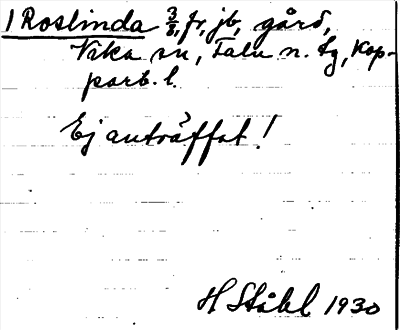 1 Roslinda 3/8, fr, jb, gård,
Vika sn, Falu n. tg, Kop-
parb. l.
Ej anträffat!
H Ståhl 1930